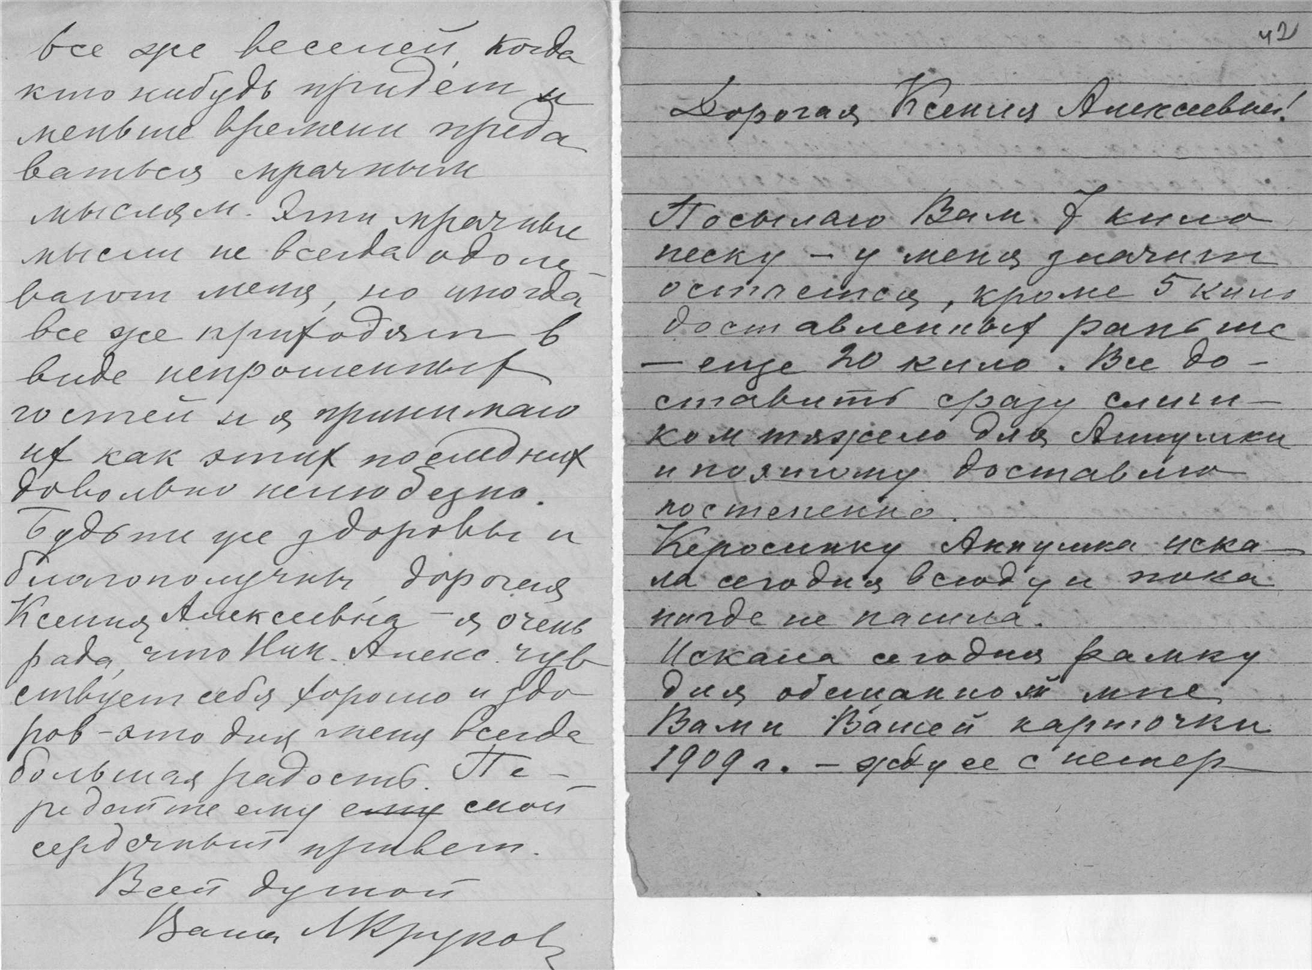 все же веселей, когда
кто нибудь придет и
меньше времени преда
ваться мрачным
мыслям. Эти мрачные
мысли не всегда одоле-
вают меня, но иногда
все же приходят в
виде непрошенных
гостей и я принимаю
их как этих последних
довольно нелюбезно.
Будьте же здоровы и
благополучны, дорогая
Ксения Алексеевна – я очень
рада, что Ник. Алекс. чув
ствует себя хорошо и здо
ров – это для меня всегда
большая радость. Пе-
редайте ему ему мой
сердечный привет.
Всей душой
Ваша
42
Дорогая Ксения Алексеевна!
Посылаю Вам 7 кило
песку – у меня значит
остается, кроме 5 кило
доставленных раньше
– еще 20 кило. Все до-
ставить сразу слиш-
ком тяжело для Аннушки
и поэтому доставлю
постепенно.
Керосинку Аннушка иска-
ла сегодня всюду и пока
нигде не нашла.
Искала сегодня рамку
для обещанной мне
Вами Вашей карточки
1909 г. – жду ее с нетер